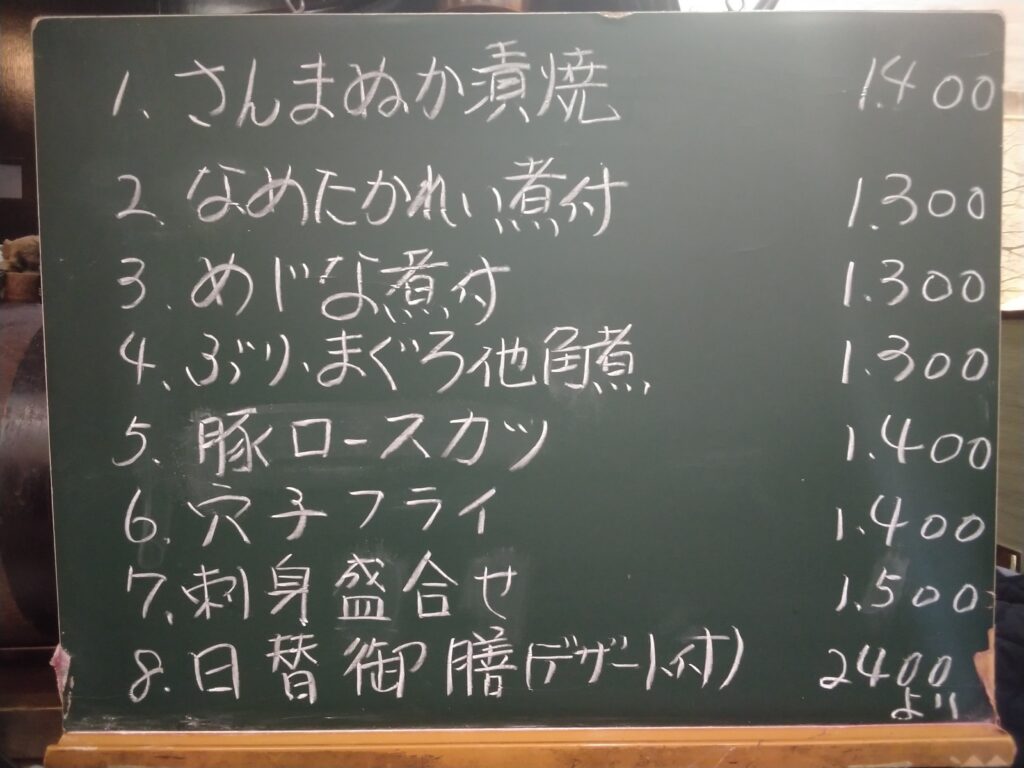 1. さんまぬか漬焼 1.400
2. なめたかれい煮付 1.300
3. めじな煮付 1.300
4. ぶり、まぐろ他角煮 1.300
5. 豚ロースカツ 1.400
6. 穴子フライ 1.400
7. 刺身盛合せ 1.500
8. 日替御膳(デザート付) 2400
より